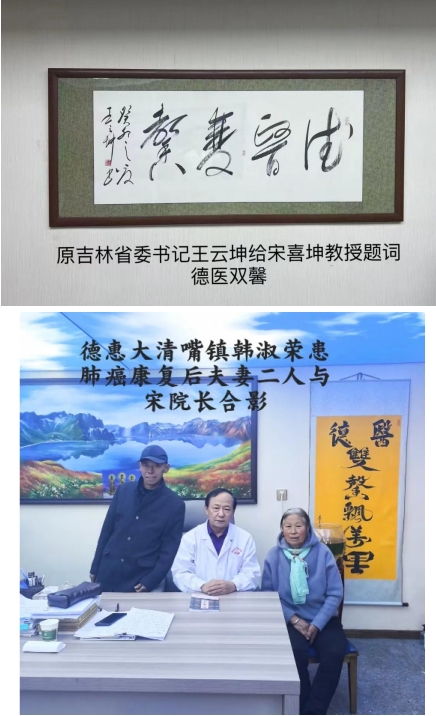 德醫雙馨
癸卯之夏
王云坤书
原吉林省委书记王云坤给宋喜坤教授题词
德医双馨
德惠大清嘴镇韩淑荣患
肺癌康复后夫妻二人与
宋院长合影
醫德雙馨飄萬里